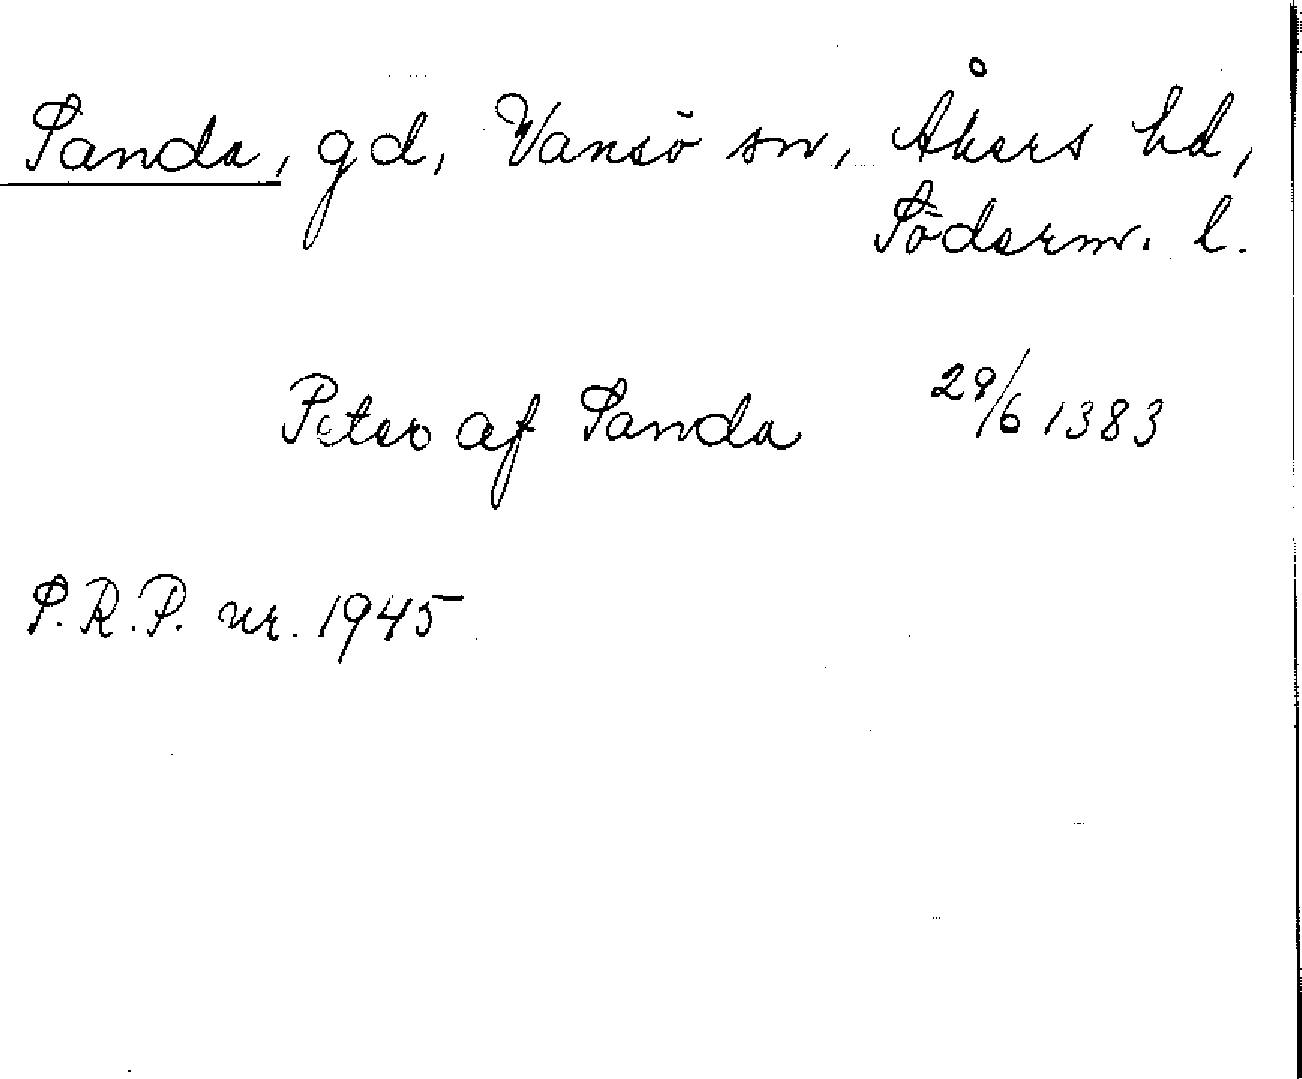 Sanda, gd, Vansö sn, Åkers hd,
Söderm. l.
Peter af Sanda 29/6 1383
S.R.P. nr. 1945